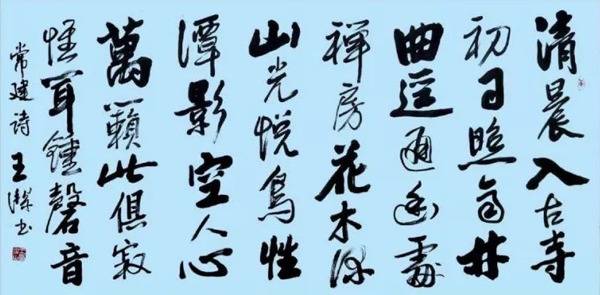 清晨入古寺
初日照高林
曲逕通幽處
禪房花木深
山光悅鳥性
潭影空人心
萬籟此俱寂
惟聞鍾磬音
常建詩 王